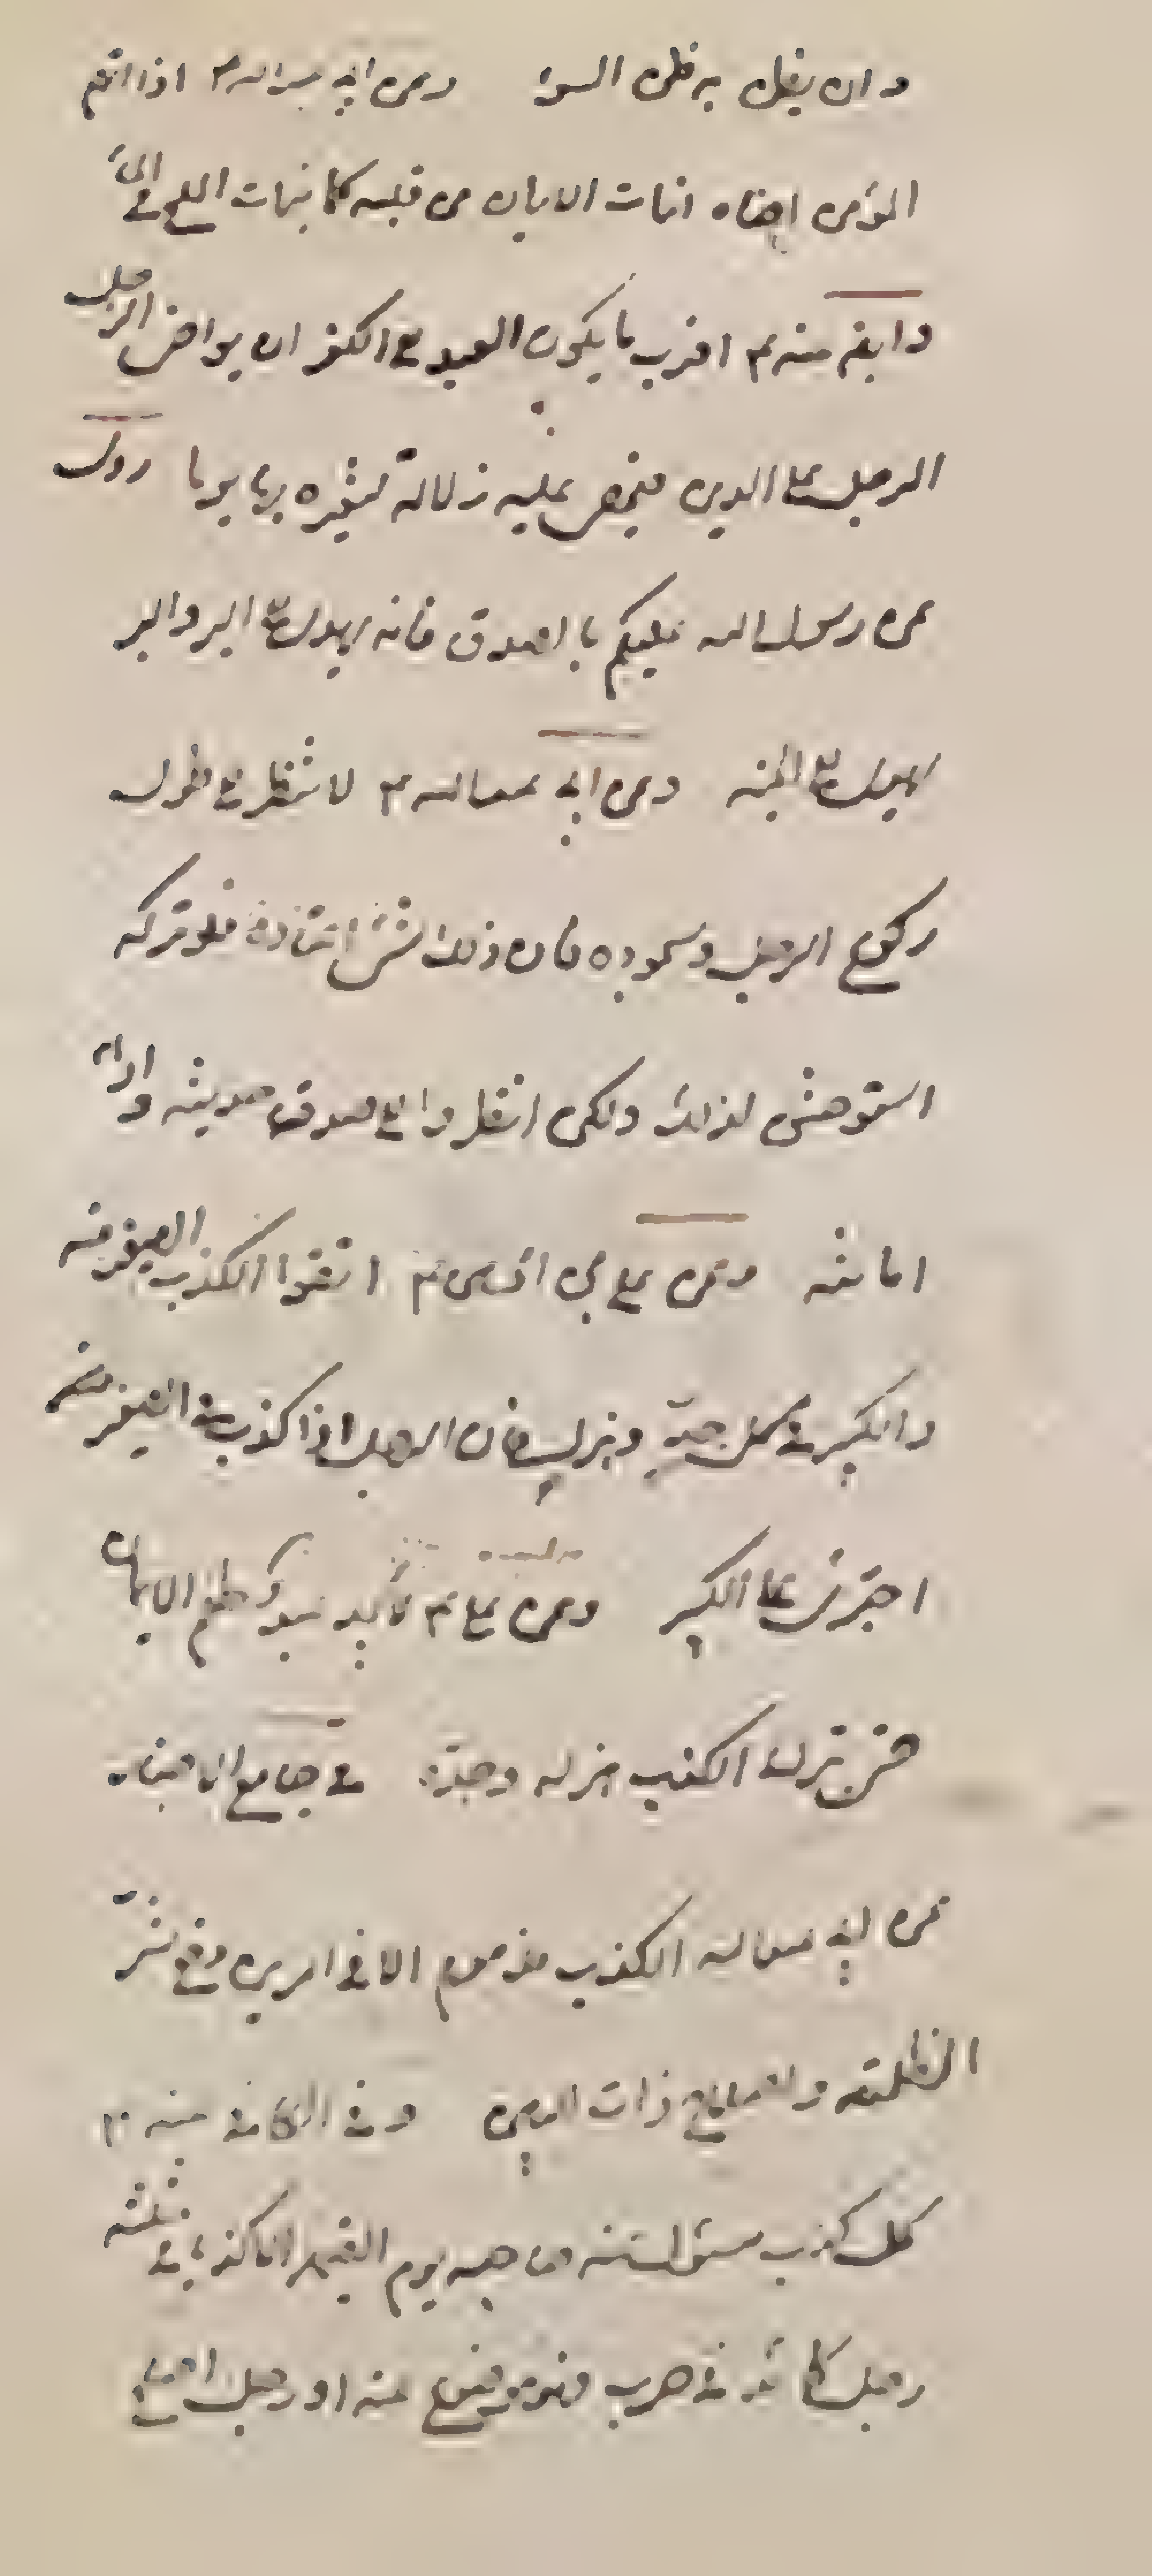 وان يظن به ظن السوء وعن ابي عبد الله ع اذا اتهم
المؤمن اخاه انماث الايمان من قلبه كما ينماث الملح في الماء
وايضا منه ع اقرب ما يكون العبد الى الكفر ان يواخي الرجل
الرجل على الدين فيحصى عليه زلاته ليعيره بها يوما روى
عن رسول الله عليكم بالصدق فانه يهدى الى البر والبر
يهدى الى الجنة وعن ابي عبد الله ع لا تنظر الى طول
ركوع الرجل وسجوده فان ذلك شئ اعتاده فلو تركه
استوحش لذلك ولكن انظروا الى صدق حديثه واداء
امانته وعن علي بن الحسين ع اتقوا الكذب الصغير منه
والكبير في كل جد وهزل فان الرجل اذا كذب في الصغير
اجترى على الكبير وعن علي ع لا يجد عبد طعم الايمان
حتى يترك الكذب هزله وجده في جامع الاخبار
عن ابي عبد الله الكذب مذموم الا في امرين دفع شر
الظلمة واصلاح ذات البين وفي الكافي عنه ع
كل كذب مسئول عنه صاحبه يوم القيمة الا كذبا في ثلثة
رجل كائد في حرب فهو موضوع عنه او رجل اصلح